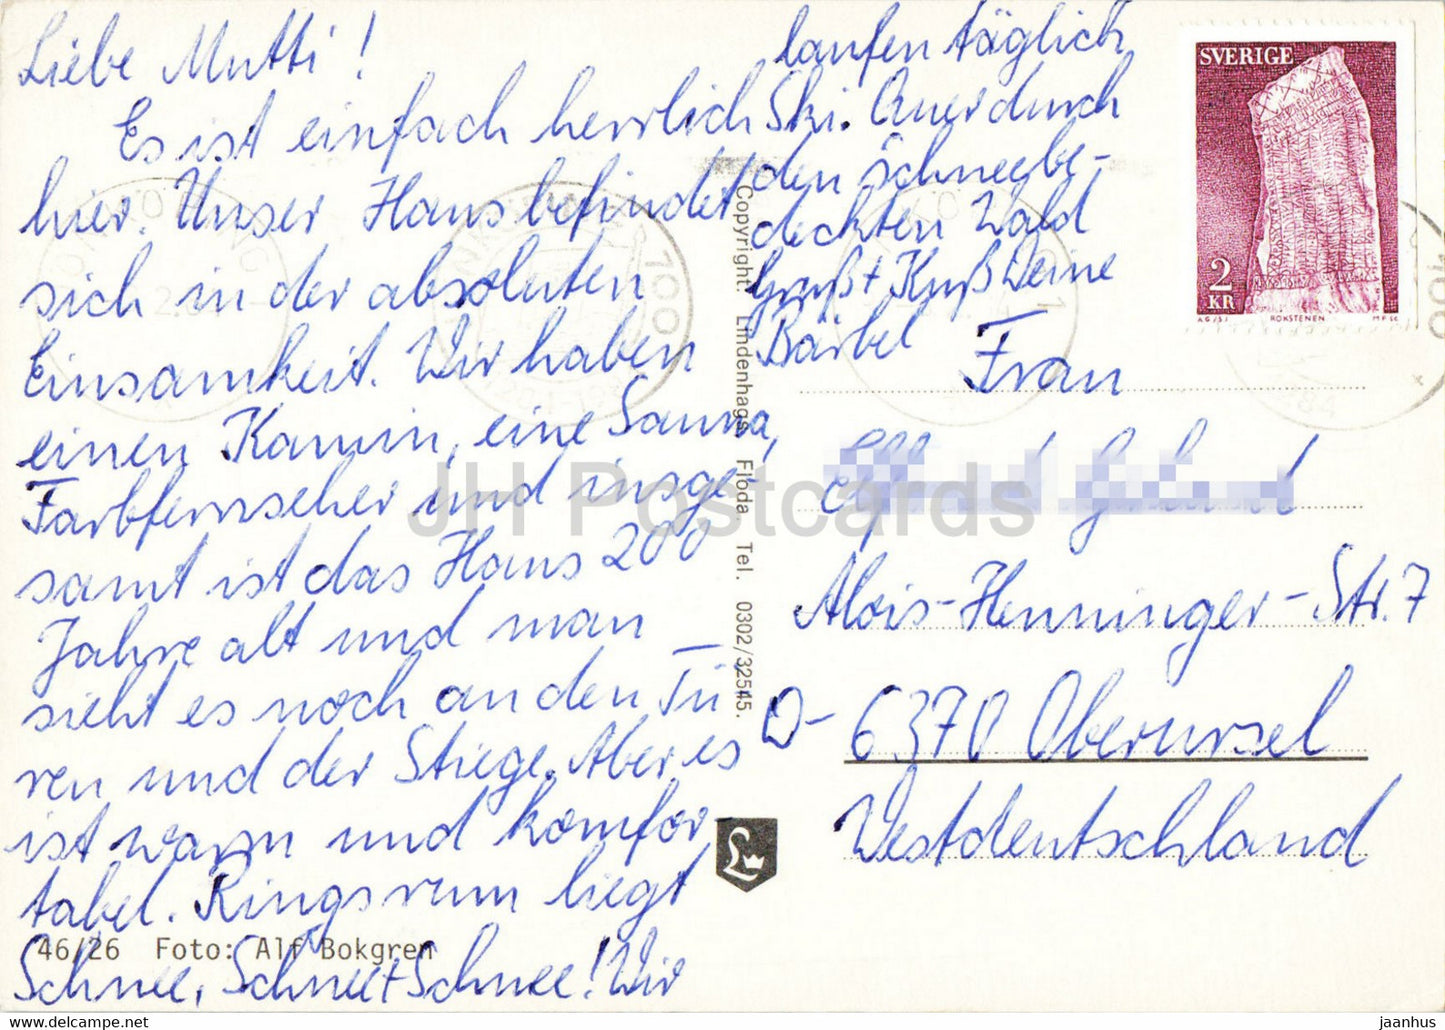 Liebe Mutti!
Es ist einfach herrlich
hier. Unser Haus befindet
sich in der absoluten
Einsamkeit. Wir haben
einen Kamin, eine Sauna,
Farbfernseher und insge-
samt ist das Haus 200
Jahre alt und man
sieht es noch an den Tü-
ren und der Stiege. Aber es
ist warm und komfor-
tabel. Ringsrum liegt
Schnee, Schnee + Schnee! Wir
laufen täglich
Ski. Quer durch
den schneebe-
deckten Wald
Gruß + Kuß Deine
Bärbel
SVERIGE
2
KR
ROKSTENEN
Frau
Alois-Henninger-Str. 7
D- 6370 Oberursel
Westdeutschland
Copyright: Lindenhags, Floda. Tel. 0302/32545.
46/26 Foto: Alf Bokgren
JH Postcards
www.delcampe.net
jaanhus